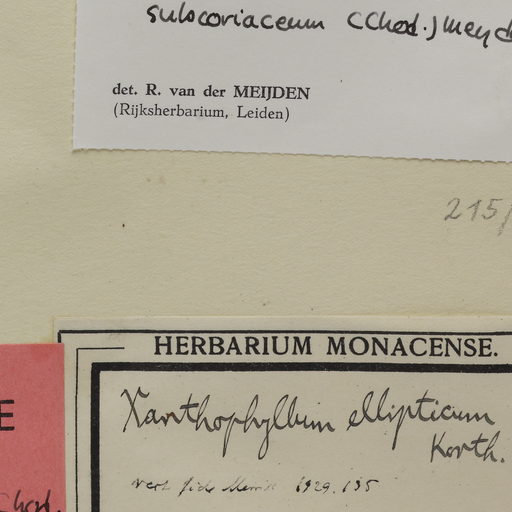 subcoriaceum (Chod.) Meyd
det. R. van der MEIJDEN
(Rijksherbarium, Leiden)
215/
HERBARIUM MONACENSE.
Xanthophyllum ellipticum
Korth.
E
fide 1929. 135
Chod.